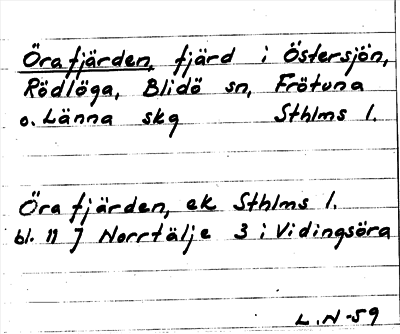 Örafjärden, fjärd i Östersjön,
Rödlöga, Blidö sn, Frötuna
o. Länna skg Sthlms l.
Örafjärden, ek Sthlms l.
bl. 11 J Norrtälje 3 i Vidingsöra
L.N-59